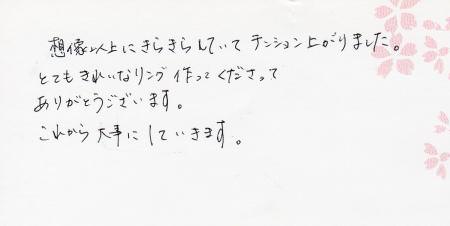 想像以上にきらきらしていてテンション上がりました。
とてもきれいなリング作ってくださって
ありがとうございます。
これから大事にしていきます。